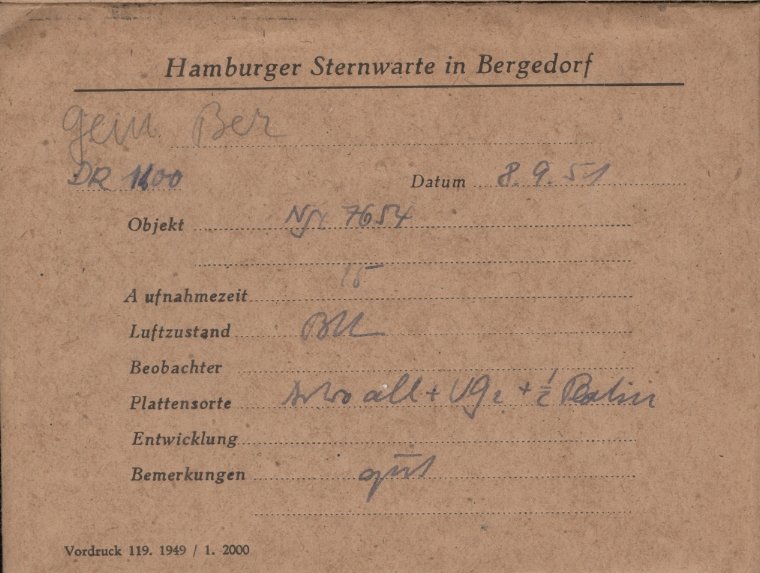 Hamburger Sternwarte in Bergedorf
gem Ber
DR 1100
Datum 8.9.51
Objekt Ngc 7654
Aufnahmezeit 15
Luftzustand
Beobachter
Plattensorte all + UG2 + 1/2
Entwicklung
Bemerkungen gut
Vordruck 119. 1949 / 1. 2000